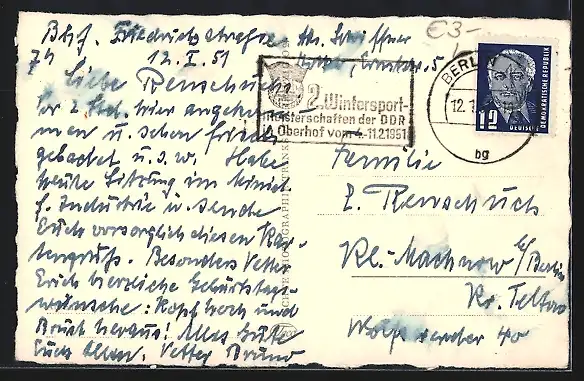 Bhf. Friedrichstraße
12. I. 51
7h
Liebe Renschuchs
vor 2 Std. hier angekom-
men u. schon frisch
gebadet u. s. w. Habe
heute Sitzung im Minist.
f. Industrie u. sende
Euch vorsorglich diesen Kar-
tengruß. Besonders Vetter
Erich herzliche Geburtstags-
wünsche: Kopf hoch und
Brust heraus! Alles Gute
Euch allen. Vetter Bruno
€3-
2. Wintersport-
meisterschaften der DDR
Oberhof vom 4.-11.2.1951
BERLIN
12.1
bg
12
DEUTSCHE
DEMOKRATISCHE REPUBLIK
Familie
E. Renschuch
Kl.-Machnow b/Berlin
Kr. Teltow
Wolfswerder 40